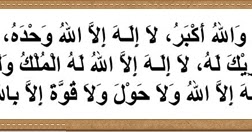 وَاللهُ أَكْبَرُ، لاَ إِلـهَ إِلاَّ اللهُ وَحْدَهُ،
لَهُ، لاَ إِلـهَ إِلاَّ اللهُ لَهُ الْمُلْكُ
إِلاَّ اللهُ وَلاَ حَوْلَ وَلاَ قُوَّةَ إِلاَّ